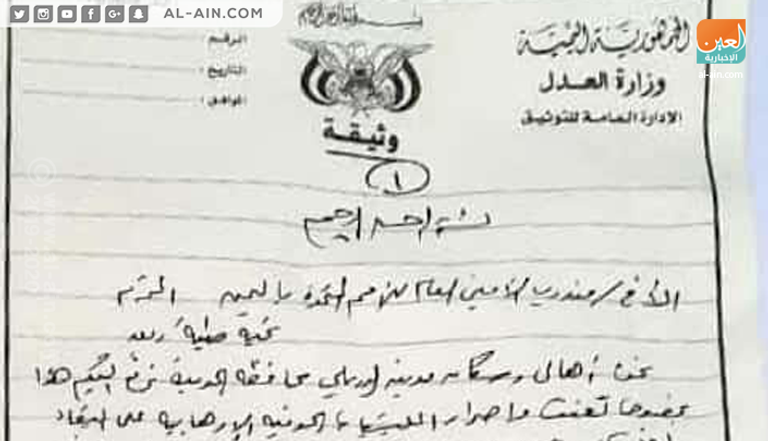 AL-AIN.COM
العين
الإخبارية
al-ain.com
الجمهورية اليمنية
وزارة العدل
الإدارة العامة للتوثيق
الرقم :
التاريخ :
الموافق :
وثيقة
١
بسم الله الرحمن الرحيم
الأخ / مندوب الأمين العام للأمم المتحدة باليمن المحترم
تحية طيبة وبعد
نحن أهالي وسكان مدينة محافظة الحديدة نرفع إليكم هذا
بخصوص تعنت وإصرار المليشيات الحوثية الإرهابية على